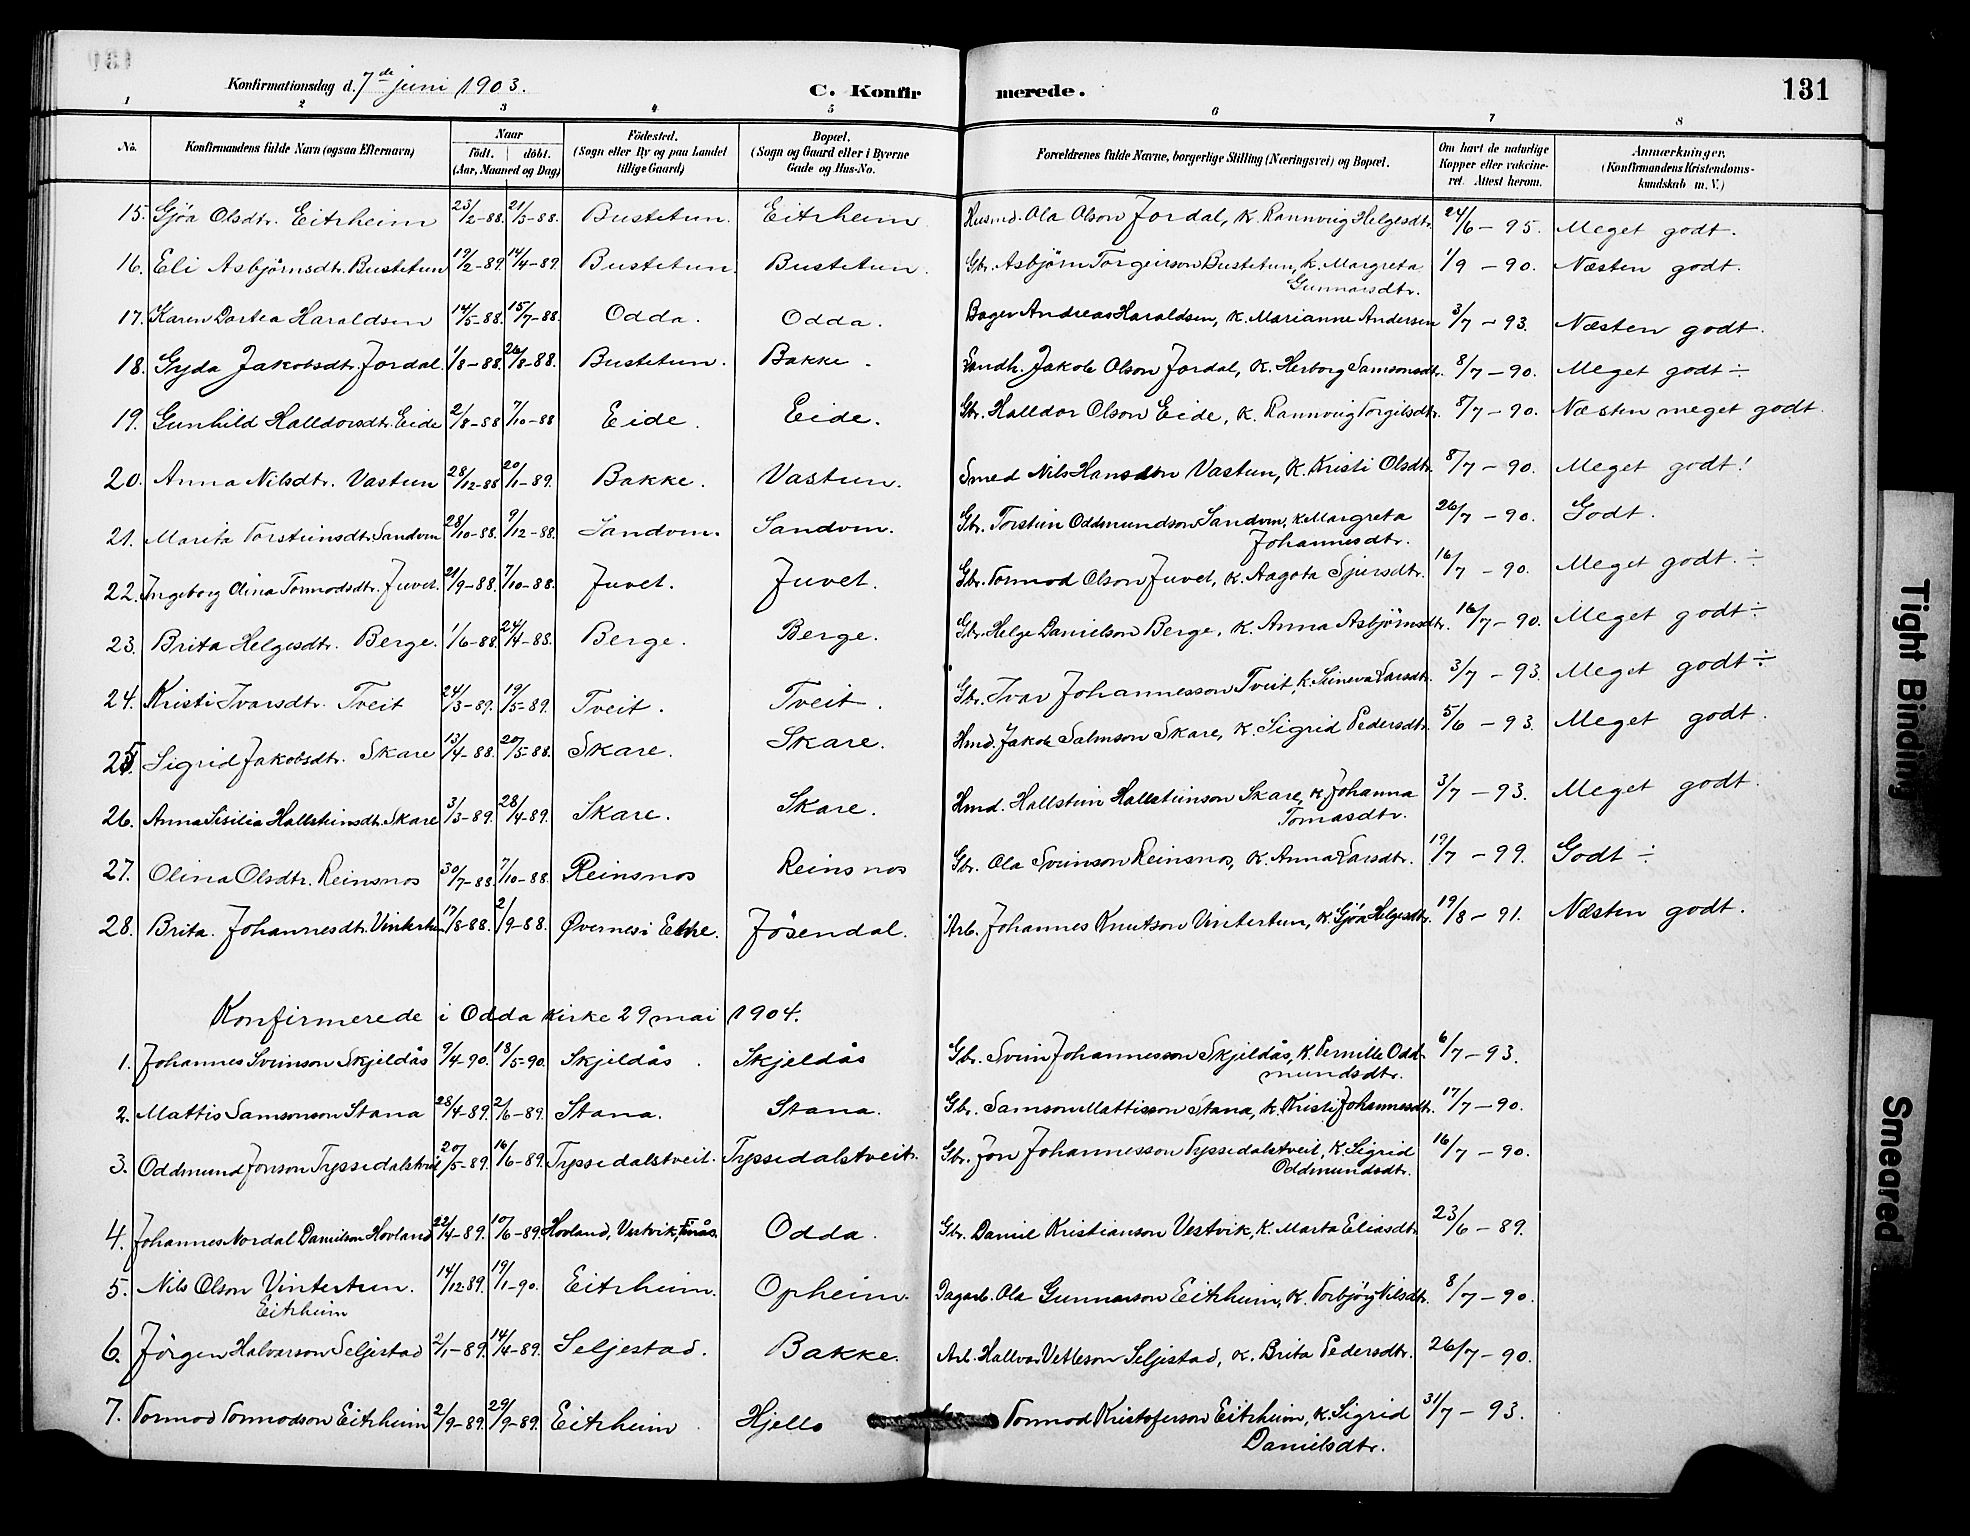 Konfirmationsdag d. 7de juni 1903. C. Konfirmerede. 131
1 2 3 4 5 6 7 8
No. Konfirmandens fulde Navn (ogsaa Efternavn) Naar födt. döbt. (Aar, Maaned og Dag) Födested. (Sogn eller By og paa Landet tillige Gaard) Bopæl. (Sogn og Gaard eller i Byerne Gade og Hus-No. Forældrenes fulde Navne, borgerlige Stilling (Næringsvei) og Bopæl. Om havt de naturlige Kopper eller vakcineret. Attest herom. Anmærkninger. (Konfirmandens Kristendomskundskab m. V.)
15. Gjöa Olsdtr. Eitrheim 23/2-88. 21/3-88. Bustetun. Eitrheim Husmd. Ola Olson Jordal, K. Rannveig Helgesdtr. 24/6-95. Meget godt.
16. Eli Asbjörnsdtr. Bustetun 19/2-89. 14/4-89. Bustetun. Bustetun. Gbr. Asbjörn Torgeirson Bustetun, K. Margreta Gunnarsdtr. 1/9-90. Næsten godt.
17. Karen Dortea Haraldsen 14/5-88. 15/7-88. Odda. Odda. Bager Andreas Haraldsen, K. Marianne Andersen 3/7-93. Næsten godt.
18. Gyda Jakobsdtr. Jordal. 1/8-88. 26/8-88. Bustetun. Bakke. Landh. Jakob Olson Jordal, K. Herborg Samsonsdtr. 8/7-90. Meget godt ÷
19. Gunhild Halldorsdtr. Eide 2/8-88 7/10-88 Eide. Eide. Gbr. Halldor Olson Eide, K. Rannveig Torgilsdtr. 8/7-90. Næsten meget godt.
20. Anna Nilsdtr. Vastun 28/12-88 20/1-89. Bakke. Vastun. Smed Nils Hansson Vastun, K. Kristi Olsdtr. 8/7-90. Meget godt!
21. Marita Torsteinsdtr. Sandven 28/10-88. 9/12-88. Sandven. Sandven. Gbr. Torstein Oddmundson Sandven, K. Margreta Johannesdtr. 26/7-90. Godt.
22. Ingeborg Olina Tormodsdtr. Juvet. 21/9-88. 7/10-88. Juvet. Juvet. Gbr. Tormod Olson Juvet, K. Aagota Sjursdtr. 16/7-90. Meget godt. ÷
23. Brita Helgesdtr. Berge. 1/6-88. 24/4-88. Berge. Berge. Gbr. Helge Danielson Berge, K. Anna Asbjörnsdtr. 16/7-90. Meget godt ÷
24. Kristi Ivarsdtr. Tveit 24/3-89. 19/5-89. Tveit. Tveit. Gbr. Ivar Johannesson Tveit, K. Sineva Larsdtr. 3/7-93. Meget godt ÷
25. Sigrid Jakobsdtr. Skare 13/4-88. 20/5-88. Skare. Skare. Hmd. Jakob Salmson Skare, K. Sigrid Pedersdtr. 5/6-93. Meget godt.
26. Anna Sisilia Hallsteinsdtr. Skare 3/3-89. 28/4-89. Skare. Skare. Hmd. Hallstein Hallsteinson Skare, K. Johanna Tomasdtr. 3/7-93. Meget godt.
27. Olina Olsdtr. Reinsnos 30/7-88. 7/10-88. Reinsnos Reinsnos Gbr. Ola Sveinson Reinsnos, K. Anna Larsdtr. 19/7-99. Godt ÷
28. Brita Johannesdtr. Vintertun 17/8-88. 2/9-88. Øvernes i Ethe. Jösendal. Arb. Johannes Knutson Vintertun, K. Gjöa Helgesdtr. 19/8-91. Næsten godt.
Konfirmerede i Odda Kirke 29 mai 1904.
1. Johannes Sveinson Skjeldås 9/4-90. 18/5-90. Skjeldås. Skjeldås Gbr. Svein Johannesson Skjeldås, K. Pernille Oddmundsdtr. 6/7-93.
2. Mattis Samsonson Stana 28/4-89. 2/6-89. Stana. Stana. Gbr. Samson Mattisson Stana, K. Kristi Johannesdtr. 17/7-90.
3. Oddmund Jonson Tyssedalstveit 20/5-89. 16/6-89. Tyssedalstveit. Tyssedalstveit. Gbr. Jon Johannesson Tyssedalstveit, K. Sigrid Oddmundsdtr. 16/7-90.
4. Johannes Nordal Danielson Hovland 22/4-89. 10/6-89. Hovland, Vestvik, Odda. Gbr. Daniel Kristianson Vestvik, K. Marta Eliasdtr. 23/6-89.
5. Nils Olson Vintertun. Eitrheim 14/12-89. 19/1-90. Eitrheim. Opheim. Dagarb. Ola Gunnarson Eitrheim, K. Torbjörg Nilsdtr. 8/7-90.
6. Jörgen Halvarson Seljestad 2/1-89. 14/4-89. Seljestad. Bakke. Arb. Hallvar Vetleson Seljestad, K. Brita Pedersdtr. 26/7-90.
7. Tormod Tormodson Eitrheim 2/9-89. 29/9-89. Eitrheim. Hjello Tormod Kristoferson Eitrheim, K. Sigrid Danielsdtr. 31/7-93.
Tight Binding
Smeared